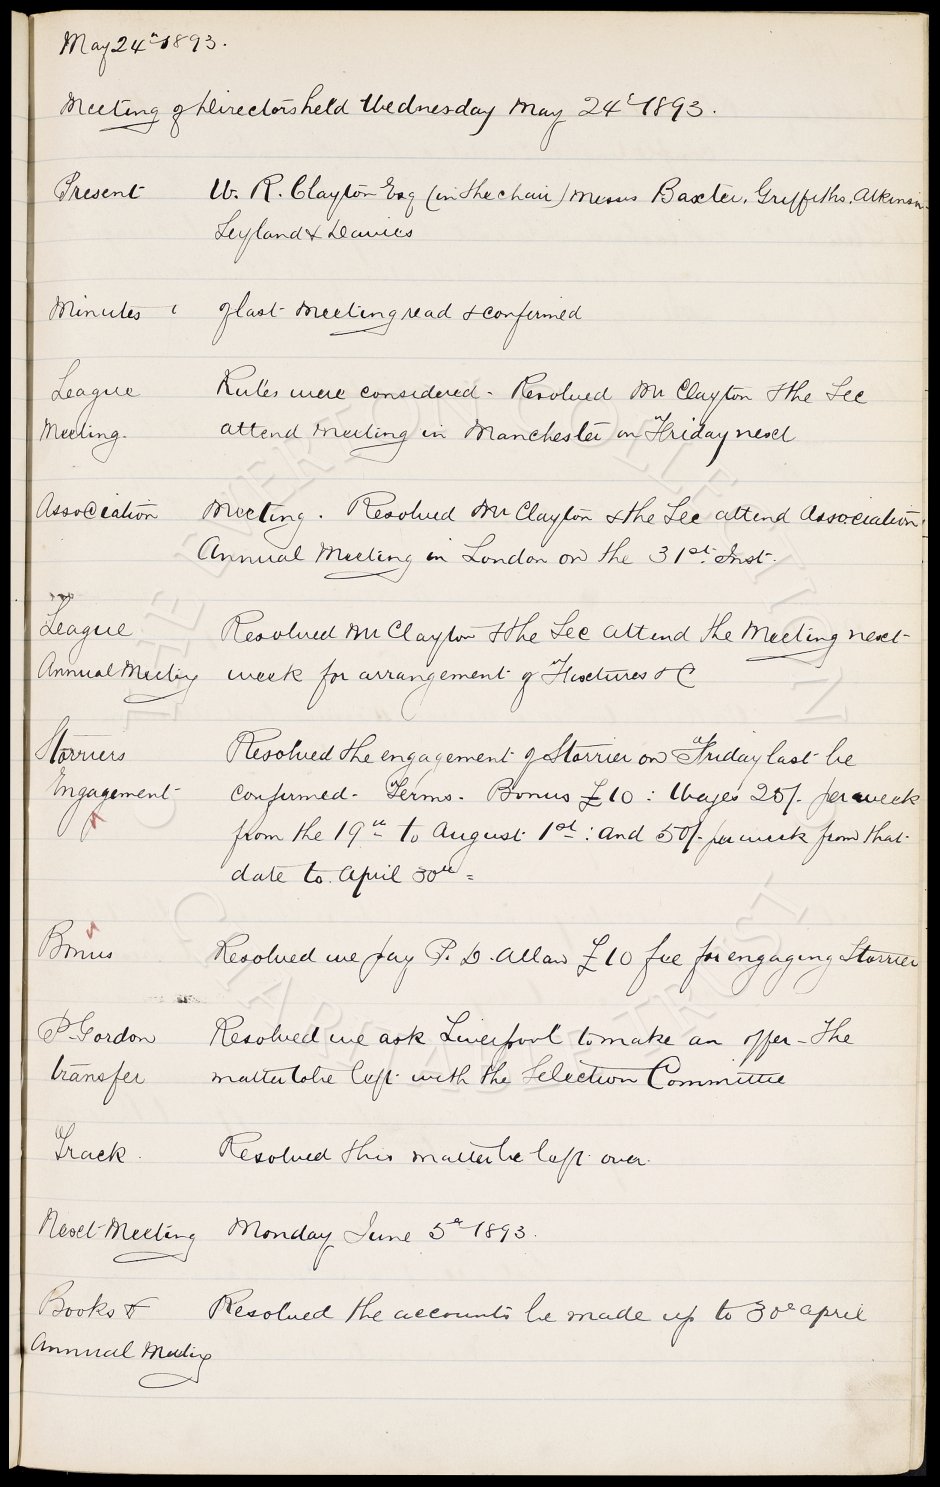 May 24th 1893.
Meeting of Directors held Wednesday May 24th 1893.
Present W. R. Clayton Esq (in the chair) Messrs Baxter, Griffiths, Atkinson
Leyland & Davies
Minutes of last meeting read & confirmed
League Rules were considered - Resolved Mr Clayton & the Sec
Meeting. attend meeting in Manchester on Friday next
Association Meeting. Resolved Mr Clayton & the Sec attend Association
Annual Meeting in London on the 31st Inst.
League Resolved Mr Clayton & the Sec attend the Meeting next
Annual Meeting week for arrangement of Fixtures &C
Storriers Resolved the engagement of Storrier on Friday last be
Engagement confirmed - Terms - Bonus £10 : Wages 25/- per week
from the 19th to August 1st : and 50/- per week from that
date to April 30th =
Bonus Resolved we pay P. D. Allan £10 fee for engaging Storrier
P. Gordon Resolved we ask Liverpool to make an offer - The
transfer matter to be left with the Selection Committee
Track. Resolved this matter be left over.
Next Meeting Monday June 5th 1893.
Books & Resolved the accounts be made up to 30th april
Annual Meeting
THE EVERTON COLLECTION
CHARITABLE TRUST